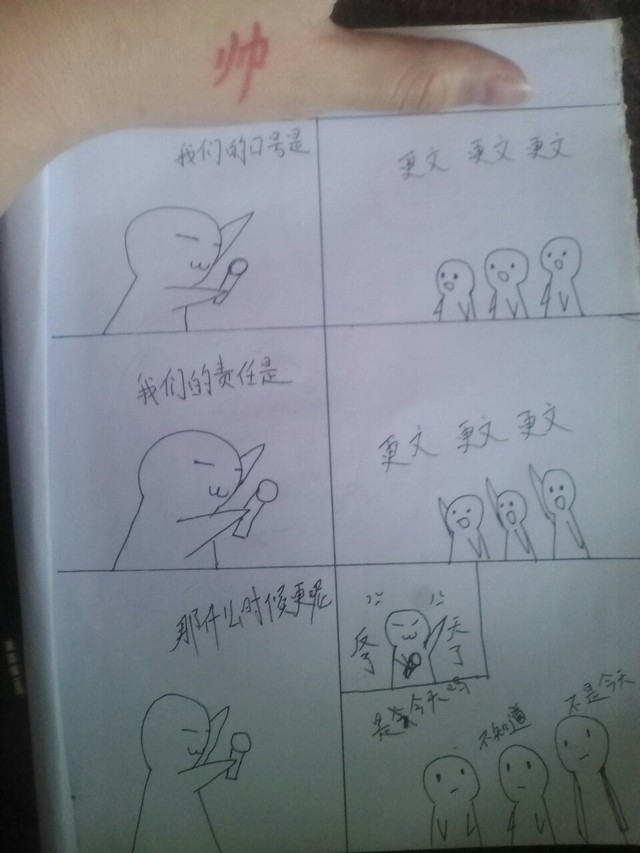 帅
我们的口号是
更文 更文 更文
我们的责任是
更文 更文 更文
那什么时候更呢
反了
天了
是今天吗
不知道
不是今天